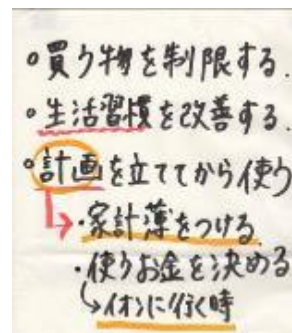 ○買う物を制限する.
・生活習慣を改善する.
○計画を立ててから使う
・家計薄をつける.
・使うお金を決める
イオンに行く時